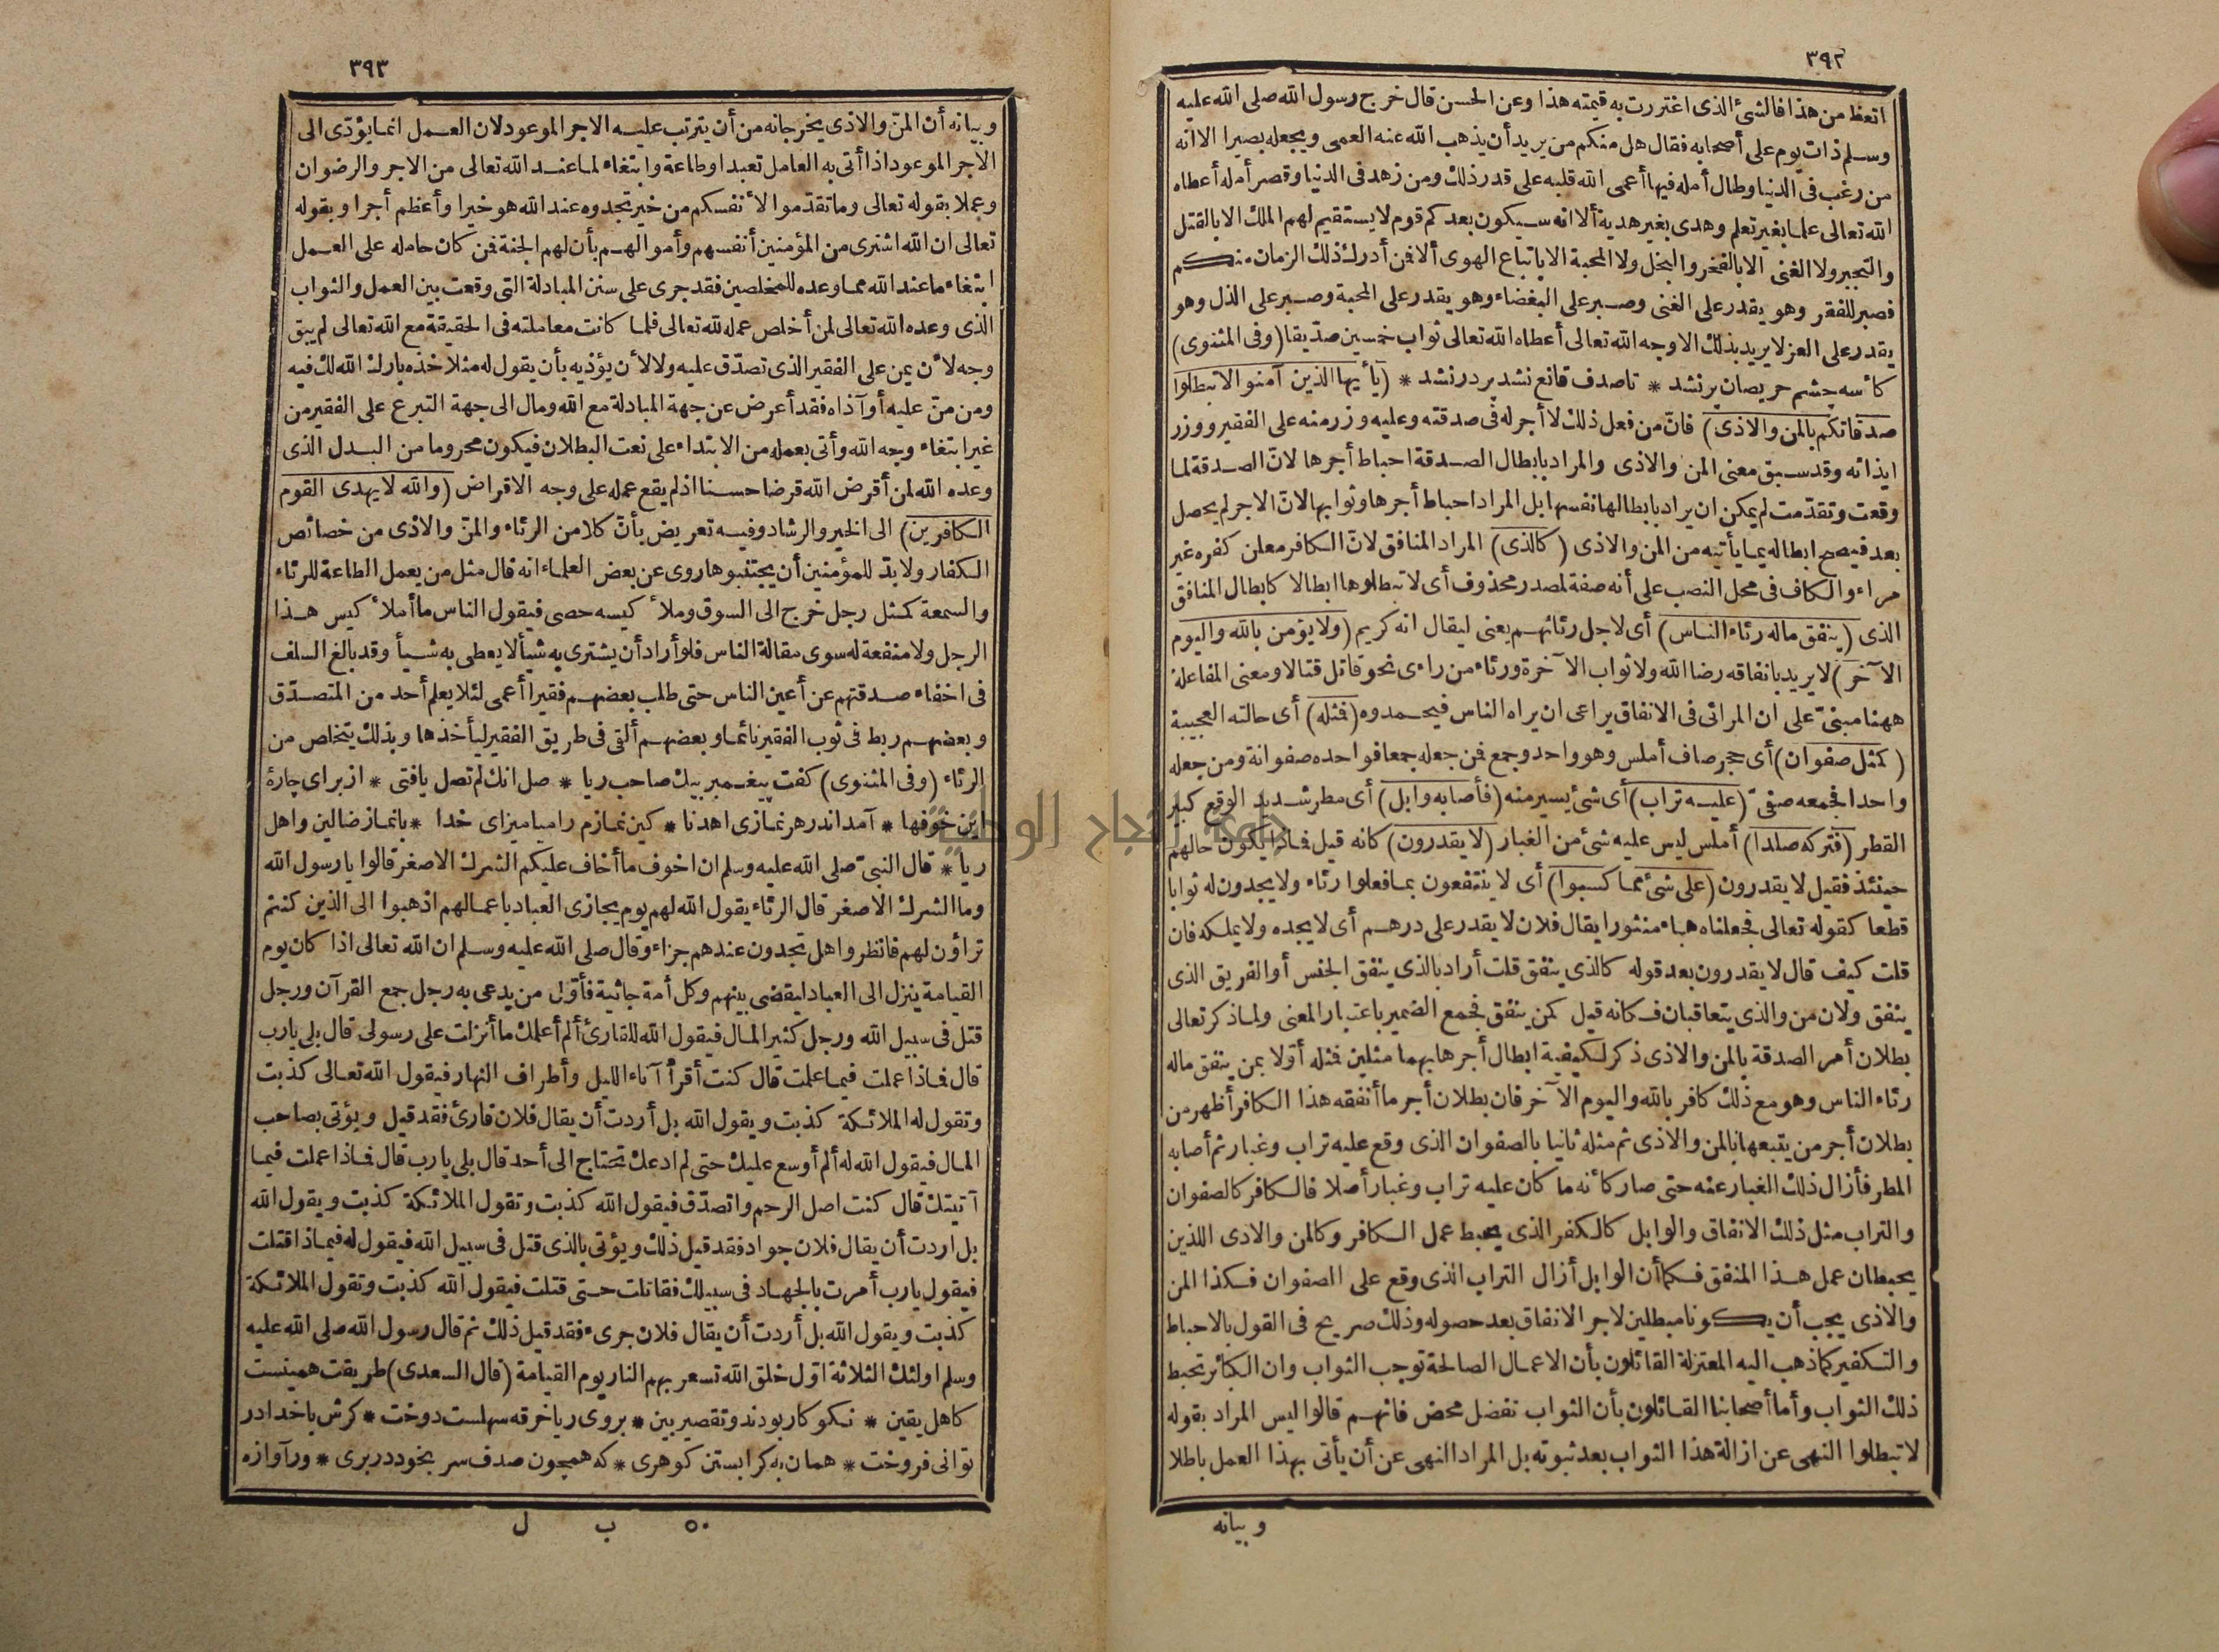 ٣٩٢
اتعظ من هذا فالشئ الذى اغتررت به قيمته هذا وعن الحسن قال خرج رسول الله صلى الله عليه
وسلم ذات يوم على أصحابه فقال هل منكم من يريد أن يذهب الله عنه العمى ويجعله بصيرا الا انه
من رغب فى الدنيا وطال أمله فيها أعمى الله قلبه على قدر ذلك ومن زهد فى الدنيا وقصر أمله أعطاه
الله تعالى علما بغير تعلم وهدى بغير هدية ألا انه سيكون بعدكم قوم لا يستقيم لهم الملك الا بالقتل
والتجبر ولا الغنى الا بالفخر والبخل ولا المحبة الا باتباع الهوى ألا فمن أدرك ذلك الزمان منكم
فصبر للفقر وهو يقدر على الغنى وصبر على البغضاء وهو يقدر على المحبة وصبر على الذل وهو
يقدر على العز لا يريد بذلك الا وجه الله تعالى أعطاه الله تعالى ثواب خمسين صدّيقا (وفى المثنوى)
كاسه چشم حريصان پر نشد * تا صدف قانع نشد پر در نشد * (يا أيها الذين آمنوا لا تبطلوا
صدقاتكم بالمن والاذى) فانّ من فعل ذلك لا أجر له فى صدقته وعليه وزر منه على الفقير ووزر
ايذائه وقد سبق معنى المن والاذى والمراد بابطال الصدقة احباط أجرها لانّ الصدقة لما
وقعت وتقدّمت لم يمكن ان يراد بابطالها نفسها بل المراد احباط أجرها وثوابها لانّ الاجر لم يحصل
بعد فيصح ابطاله بما يأتيه من المن والاذى (كالذى) المراد المنافق لانّ الكافر معلن كفره غير
مراء والكاف فى محل النصب على أنه صفة لمصدر محذوف أى لا تبطلوها ابطالا كابطال المنافق
الذى (ينفق ماله رئاء الناس) أى لاجل رئائهم يعنى ليقال انه كريم (ولا يؤمن بالله واليوم
الآخر) لا يريد بانفاقه رضا الله ولا ثواب الآخرة ورئاء من راءى نحو قاتل قتالا ومعنى المفاعلة
ههنا مبنىّ على ان المرائى فى الانفاق يراعى ان يراه الناس فيحمدوه (فمثله) أى حالته العجيبة
(كمثل صفوان) أى حجر صاف أملس وهو واحد وجمع فمن جعله جمعا فواحده صفوانة ومن جعله
واحدا فجمعه صفىّ (عليه تراب) أى شئ يسير منه (فأصابه وابل) أى مطر شديد الوقع كبير
القطر (فتركه صلدا) أملس ليس عليه شئ من الغبار (لا يقدرون) كانه قيل فماذا يكون حالهم
حينئذ فقيل لا يقدرون (على شئ مما كسبوا) أى لا ينتفعون بما فعلوا رئاء ولا يجدون له ثوابا
قطعا كقوله تعالى فجعلناه هباء منثورا يقال فلان لا يقدر على درهم أى لا يجده ولا يملكه فان
قلت كيف قال لا يقدرون بعد قوله كالذى ينفق قلت أراد بالذى ينفق الجنس أو الفريق الذى
ينفق ولان من والذى يتعاقبان فكانه قيل كمن ينفق فجمع الضمير باعتبار المعنى ولما ذكر تعالى
بطلان أمر الصدقة بالمن والاذى ذكر لكيفية ابطال أجرها بهما مثلين فمثله أوّلا بمن ينفق ماله
رئاء الناس وهو مع ذلك كافر بالله واليوم الآخر فان بطلان أجر ما أنفقه هذا الكافر أظهر من
بطلان أجر من يتبعها بالمن والاذى ثم مثله ثانيا بالصفوان الذى وقع عليه تراب وغبار ثم أصابه
المطر فأزال ذلك الغبار عنه حتى صار كأنه ما كان عليه تراب وغبار أصلا فالكافر كالصفوان
والتراب مثل ذلك الانفاق والوابل كالكفر الذى يحبط عمل الكافر وكالمن والاذى اللذين
يحبطان عمل هذا المنفق فكما أن الوابل أزال التراب الذى وقع على الصفوان فكذا المن
والاذى يجب أن يكونا مبطلين لاجر الانفاق بعد حصوله وذلك صريح فى القول بالاحباط
والتكفير كما ذهب اليه المعتزلة القائلون بأن الاعمال الصالحة توجب الثواب وان الكبائر تحبط
ذلك الثواب وأما أصحابنا القائلون بأن الثواب تفضل محض فانهم قالوا ليس المراد بقوله
لا تبطلوا النهى عن ازالة هذا الثواب بعد ثبوته بل المراد النهى عن أن يأتى بهذا العمل باطلا
وبيانه
٣٩٣
وبيانه أن المنّ والاذى يخرجانه من أن يترتب عليه الاجر الموعود لان العمل انما يؤدّى الى
الاجر الموعود اذا أتى به العامل تعبدا وطاعة وابتغاء لما عند الله تعالى من الاجر والرضوان
وعملا بقوله تعالى وما تقدّموا لأنفسكم من خير تجدوه عند الله هو خيرا وأعظم أجرا وبقوله
تعالى ان الله اشترى من المؤمنين أنفسهم وأموالهم بأن لهم الجنة فمن كان حامله على العمل
ابتغاء ما عند الله مما وعده للمخلصين فقد جرى على سنن المبادلة التى وقعت بين العمل والثواب
الذى وعده الله تعالى لمن أخلص عمله لله تعالى فلما كانت معاملته فى الحقيقة مع الله تعالى لم يبق
وجه لأن يمن على الفقير الذى تصدّق عليه ولا لأن يؤذيه بأن يقول له مثلا خذه بارك الله لك فيه
ومن منّ عليه أو آذاه فقد أعرض عن جهة المبادلة مع الله ومال الى جهة التبرع على الفقير من
غير ابتغاء وجه الله وأتى بعمله من الابتداء على نعت البطلان فيكون محروما من البدل الذى
وعده الله لمن أقرض الله قرضا حسنا اذ لم يقع عمله على وجه الاقراض (والله لا يهدى القوم
الكافرين) الى الخير والرشاد وفيه تعريض بأنّ كلا من الرئاء والمنّ والاذى من خصائص
الكفار ولا بدّ للمؤمنين أن يجتنبوها روى عن بعض العلماء انه قال مثل من يعمل الطاعة للرئاء
والسمعة كمثل رجل خرج الى السوق وملأ كيسه حصى فيقول الناس ما أملأ كيس هذا
الرجل ولا منفعة له سوى مقالة الناس فلو أراد أن يشترى به شيأ لا يعطى به شيأ وقد بالغ السلف
فى اخفاء صدقتهم عن أعين الناس حتى طلب بعضهم فقيرا أعمى لئلا يعلم أحد من المتصدّق
وبعضهم ربط فى ثوب الفقير نائما وبعضهم ألقى فى طريق الفقير ليأخذها وبذلك يتخلص من
الرئاء (وفى المثنوى) كفت پيغمبر بيك صاحب ريا * صل انك لم تصل يافتى * از براى چارۀ
اين خوفها * آمد اندر هر نمازى اهدنا * كين نمازم را ميامیزاى خدا * بانماز ضالين واهل
ريا * قال النبىّ صلى الله عليه وسلم ان اخوف ما أخاف عليكم الشرك الاصغر قالوا يا رسول الله
وما الشرك الاصغر قال الرئاء يقول الله لهم يوم يجازى العباد باعمالهم اذهبوا الى الذين كنتم
تراؤن لهم فانظروا هل تجدون عندهم جزاء وقال صلى الله عليه وسلم ان الله تعالى اذا كان يوم
القيامة ينزل الى العباد ليقضى بينهم وكل أمة جاثية فأوّل من يدعى به رجل جمع القرآن ورجل
قتل فى سبيل الله ورجل كثير المال فيقول الله للقارئ ألم أعلمك ما أنزلت على رسولى قال بلى يا رب
قال فماذا عملت فيما علمت قال كنت أقرأ آناء الليل وأطراف النهار فيقول الله تعالى كذبت
وتقول له الملائكة كذبت ويقول الله بل أردت أن يقال فلان قارئ فقد قيل ويؤتى بصاحب
المال فيقول الله له ألم أوسع عليك حتى لم ادعك تحتاج الى أحد قال بلى يا رب قال فماذا عملت فيما
آتيتك قال كنت اصل الرحم واتصدّق فيقول الله كذبت وتقول الملائكة كذبت ويقول الله
بل اردت أن يقال فلان جواد فقد قيل ذلك ويؤتى بالذى قتل فى سبيل الله فيقول له فيماذا قتلت
فيقول يا رب أمرت بالجهاد فى سبيلك فقاتلت حتى قتلت فيقول الله كذبت وتقول الملائكة
كذبت ويقول الله بل أردت أن يقال فلان جرىء فقد قيل ذلك ثم قال رسول الله صلى الله عليه
وسلم اولئك الثلاثة اوّل خلق الله تسعر بهم النار يوم القيامة (قال السعدى) طريقت همينست
كاهل يقين * نكو كار بودند وتقصير بين * بروى ريا خرقه سهلست دوخت * كرش با خدا در
توانى فروخت * همان به كرابستن كوهرى * كه همچون صدف سر بخود در برى * ور آوازه
٥٠ ب ل
جامعة النجاح الوطنية